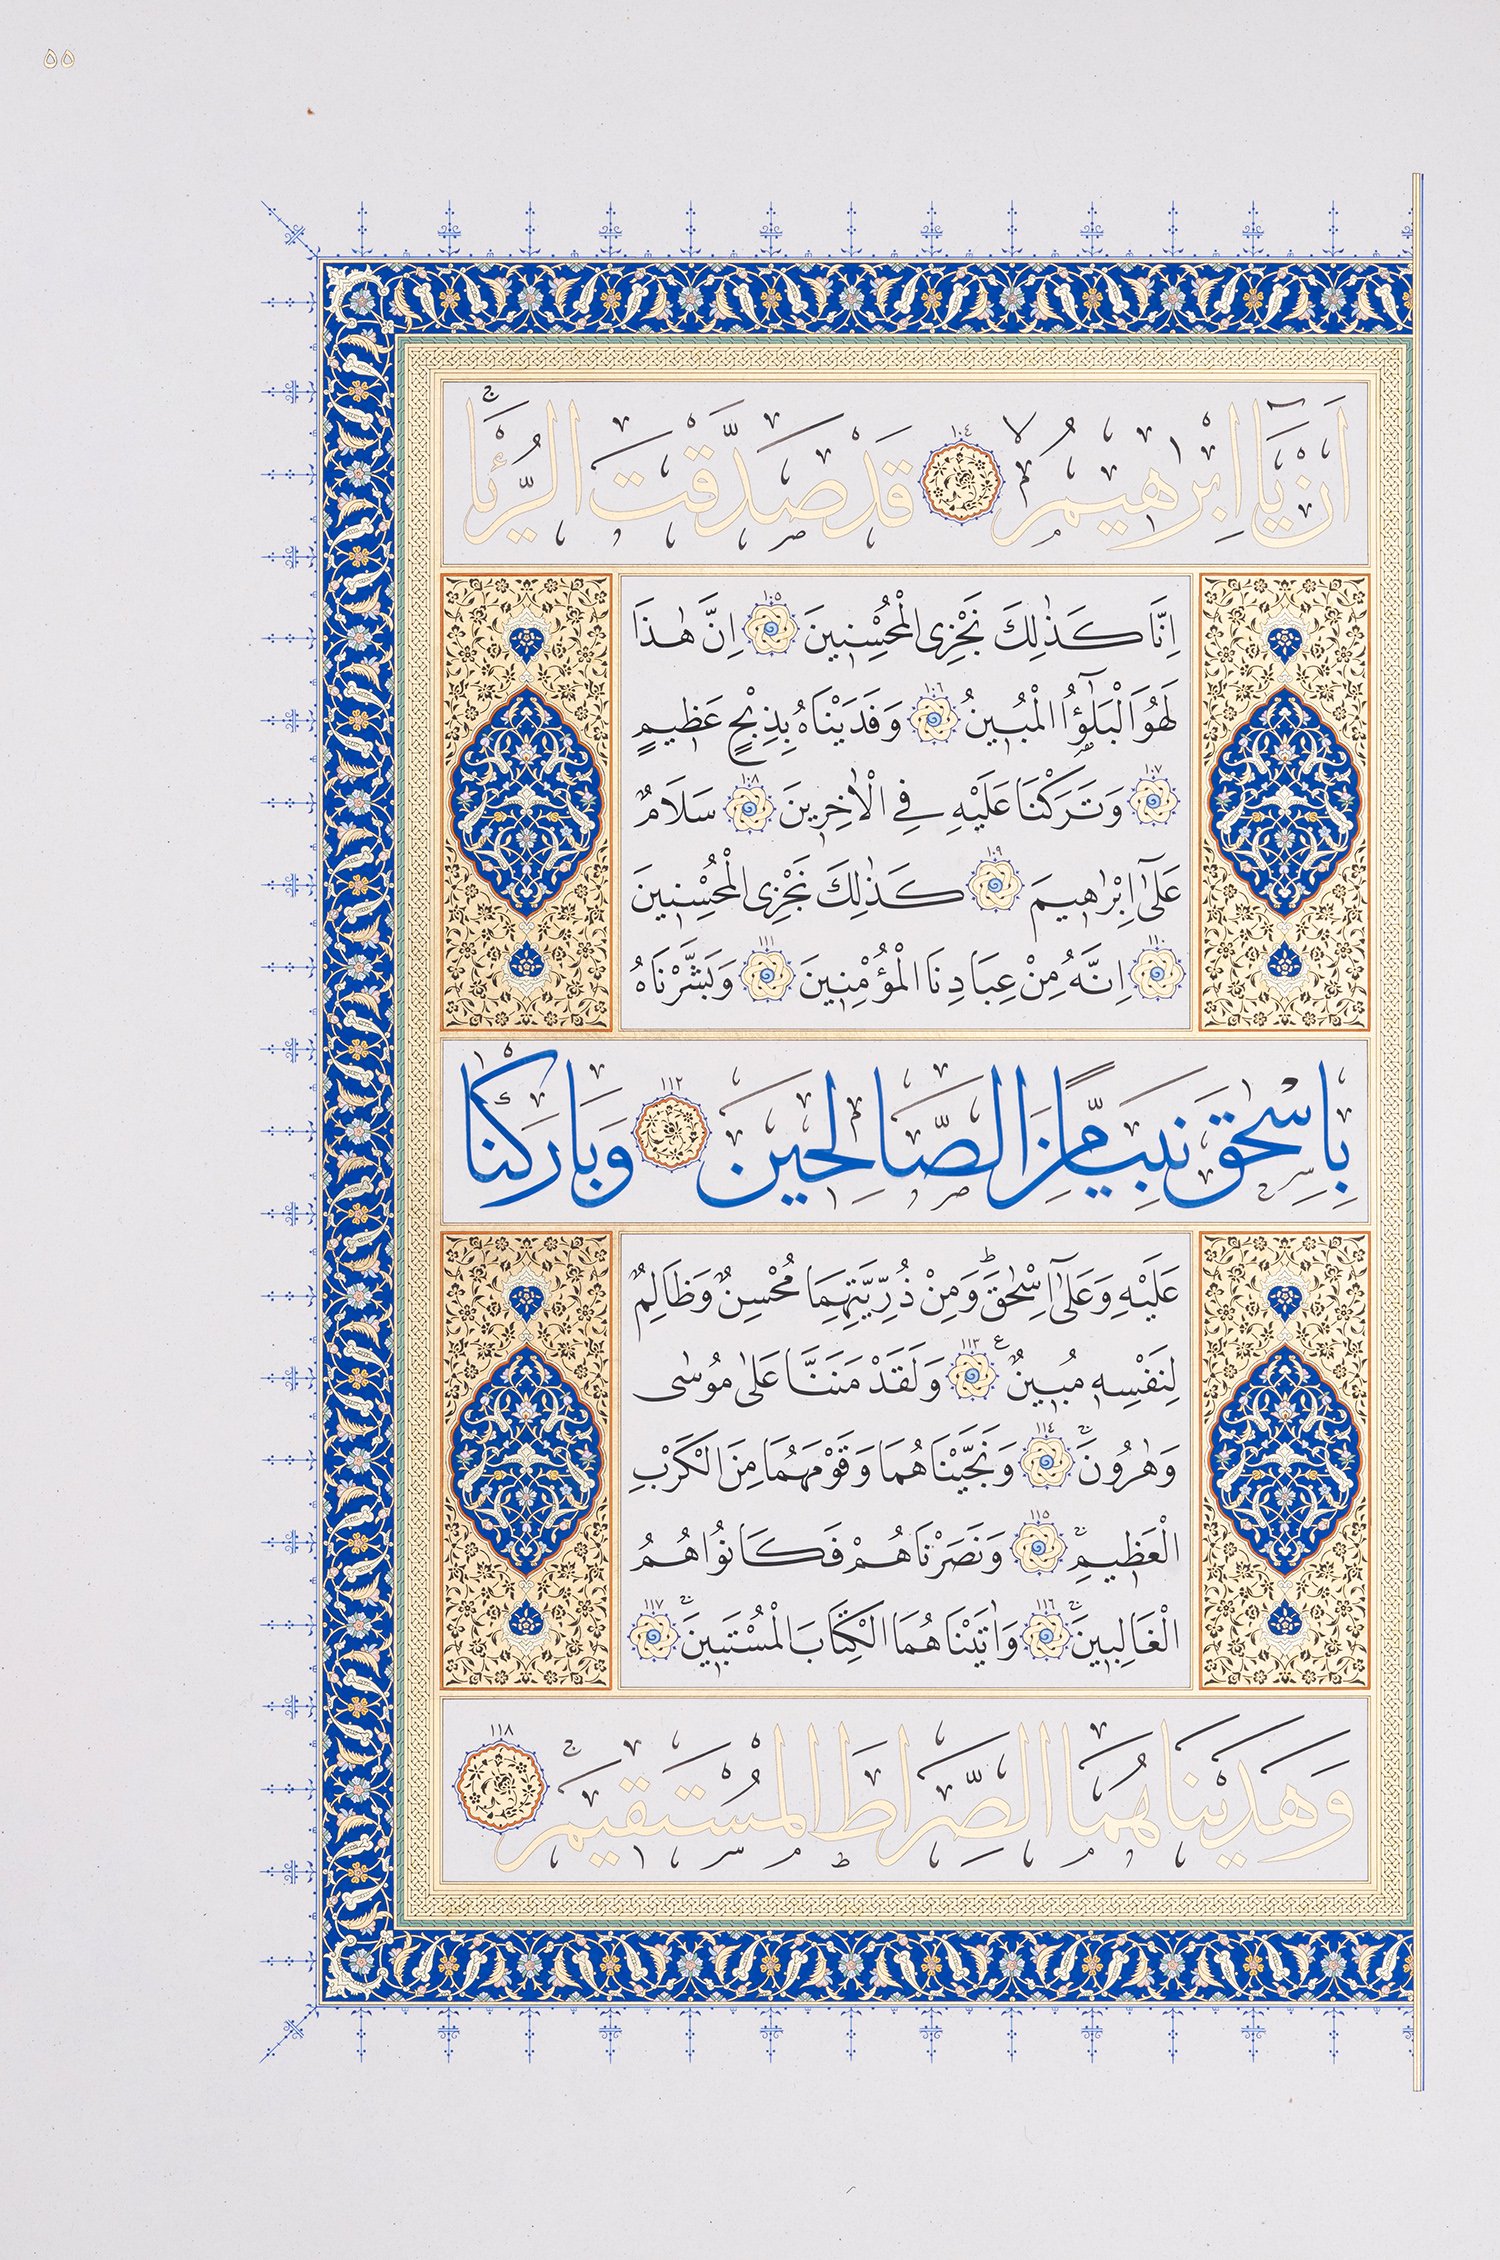 ٥٥
اَنْ يَٓا اِبْرٰهِيمُۙ ١٠٤ قَدْ صَدَّقْتَ الرُّءْيَاۚ
اِنَّا كَذٰلِكَ نَجْزِى الْمُحْسِنِينَ ١٠٥ اِنَّ هٰذَا
لَهُوَ الْبَلٰٓؤُا الْمُبِينُ ١٠٦ وَفَدَيْنَاهُ بِذِبْحٍ عَظِيمٍ
١٠٧ وَتَرَكْنَا عَلَيْهِ فِى الْاٰخِرِينَ ١٠٨ سَلَامٌ
عَلٰٓى اِبْرٰهِيمَ ١٠٩ كَذٰلِكَ نَجْزِى الْمُحْسِنِينَ
١١٠ اِنَّهُ مِنْ عِبَادِنَا الْمُؤْمِنِينَ ١١١ وَبَشَّرْنَاهُ
بِاِسْحٰقَ نَبِيًّا مِنَ الصَّالِحِينَ ١١٢ وَبَارَكْنَا
عَلَيْهِ وَعَلٰٓى اِسْحٰقَۜ وَمِنْ ذُرِّيَّتِهِمَا مُحْسِنٌ وَظَالِمٌ
لِنَفْسِهِ مُبِينٌ ع ١١٣ وَلَقَدْ مَنَنَّا عَلٰى مُوسٰى
وَهٰرُونَۚ ١١٤ وَنَجَّيْنَاهُمَا وَقَوْمَهُمَا مِنَ الْكَرْبِ
الْعَظِيمِۚ ١١٥ وَنَصَرْنَاهُمْ فَكَانُوا هُمُ
الْغَالِبِينَۚ ١١٦ وَاٰتَيْنَاهُمَا الْكِتَابَ الْمُسْتَبِينَۚ ١١٧
وَهَدَيْنَاهُمَا الصِّرَاطَ الْمُسْتَقِيمَۚ ١١٨